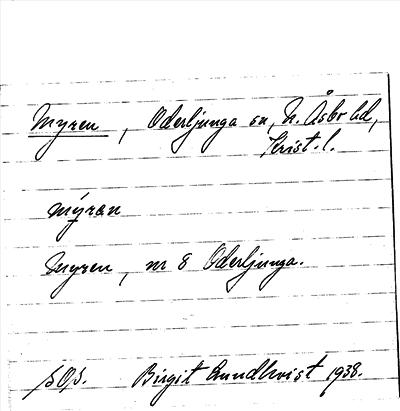 Myren, Oderljunga sn, N. Åsbo hd,
Krist. l.
mýran
Myren, nr 8 Oderljunga.
SOS. Birgit Lundkvist 1938.